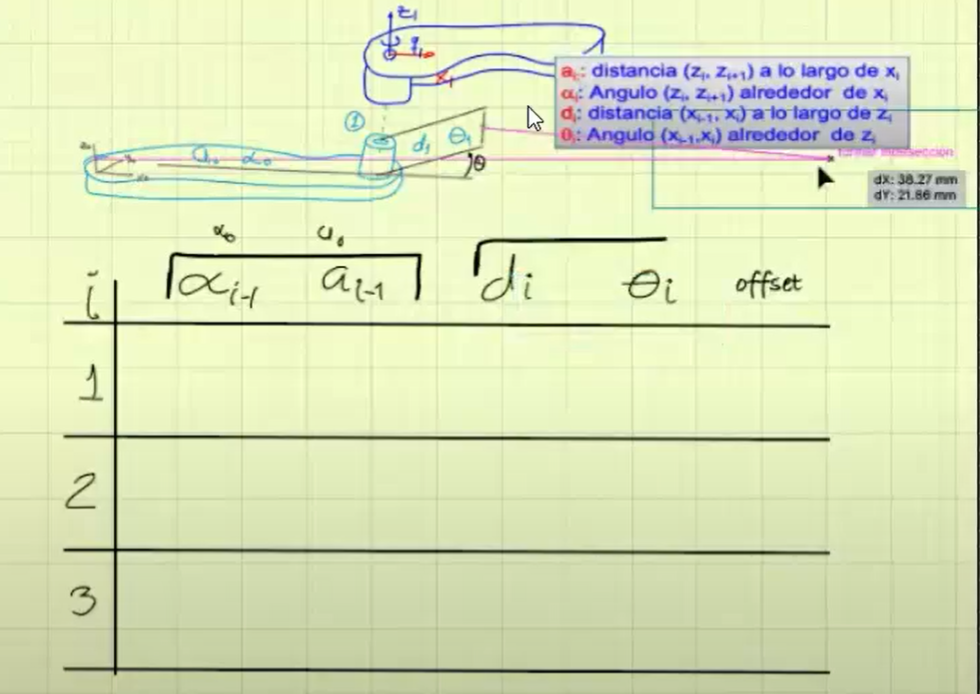 z₁
q₁
x₁
aᵢ: distancia (zᵢ, zᵢ₊₁) a lo largo de xᵢ
αᵢ: Angulo (zᵢ, zᵢ₊₁) alrededor de xᵢ
dᵢ: distancia (xᵢ₋₁, xᵢ) a lo largo de zᵢ
θᵢ: Angulo (xᵢ₋₁,xᵢ) alrededor de zᵢ
① d₁ θ₁
a₀ α₀ θ
dX: 38.27 mm
dY: 21.86 mm
α₀ a₀
i αᵢ₋₁ aᵢ₋₁ dᵢ θᵢ offset
1
2
3